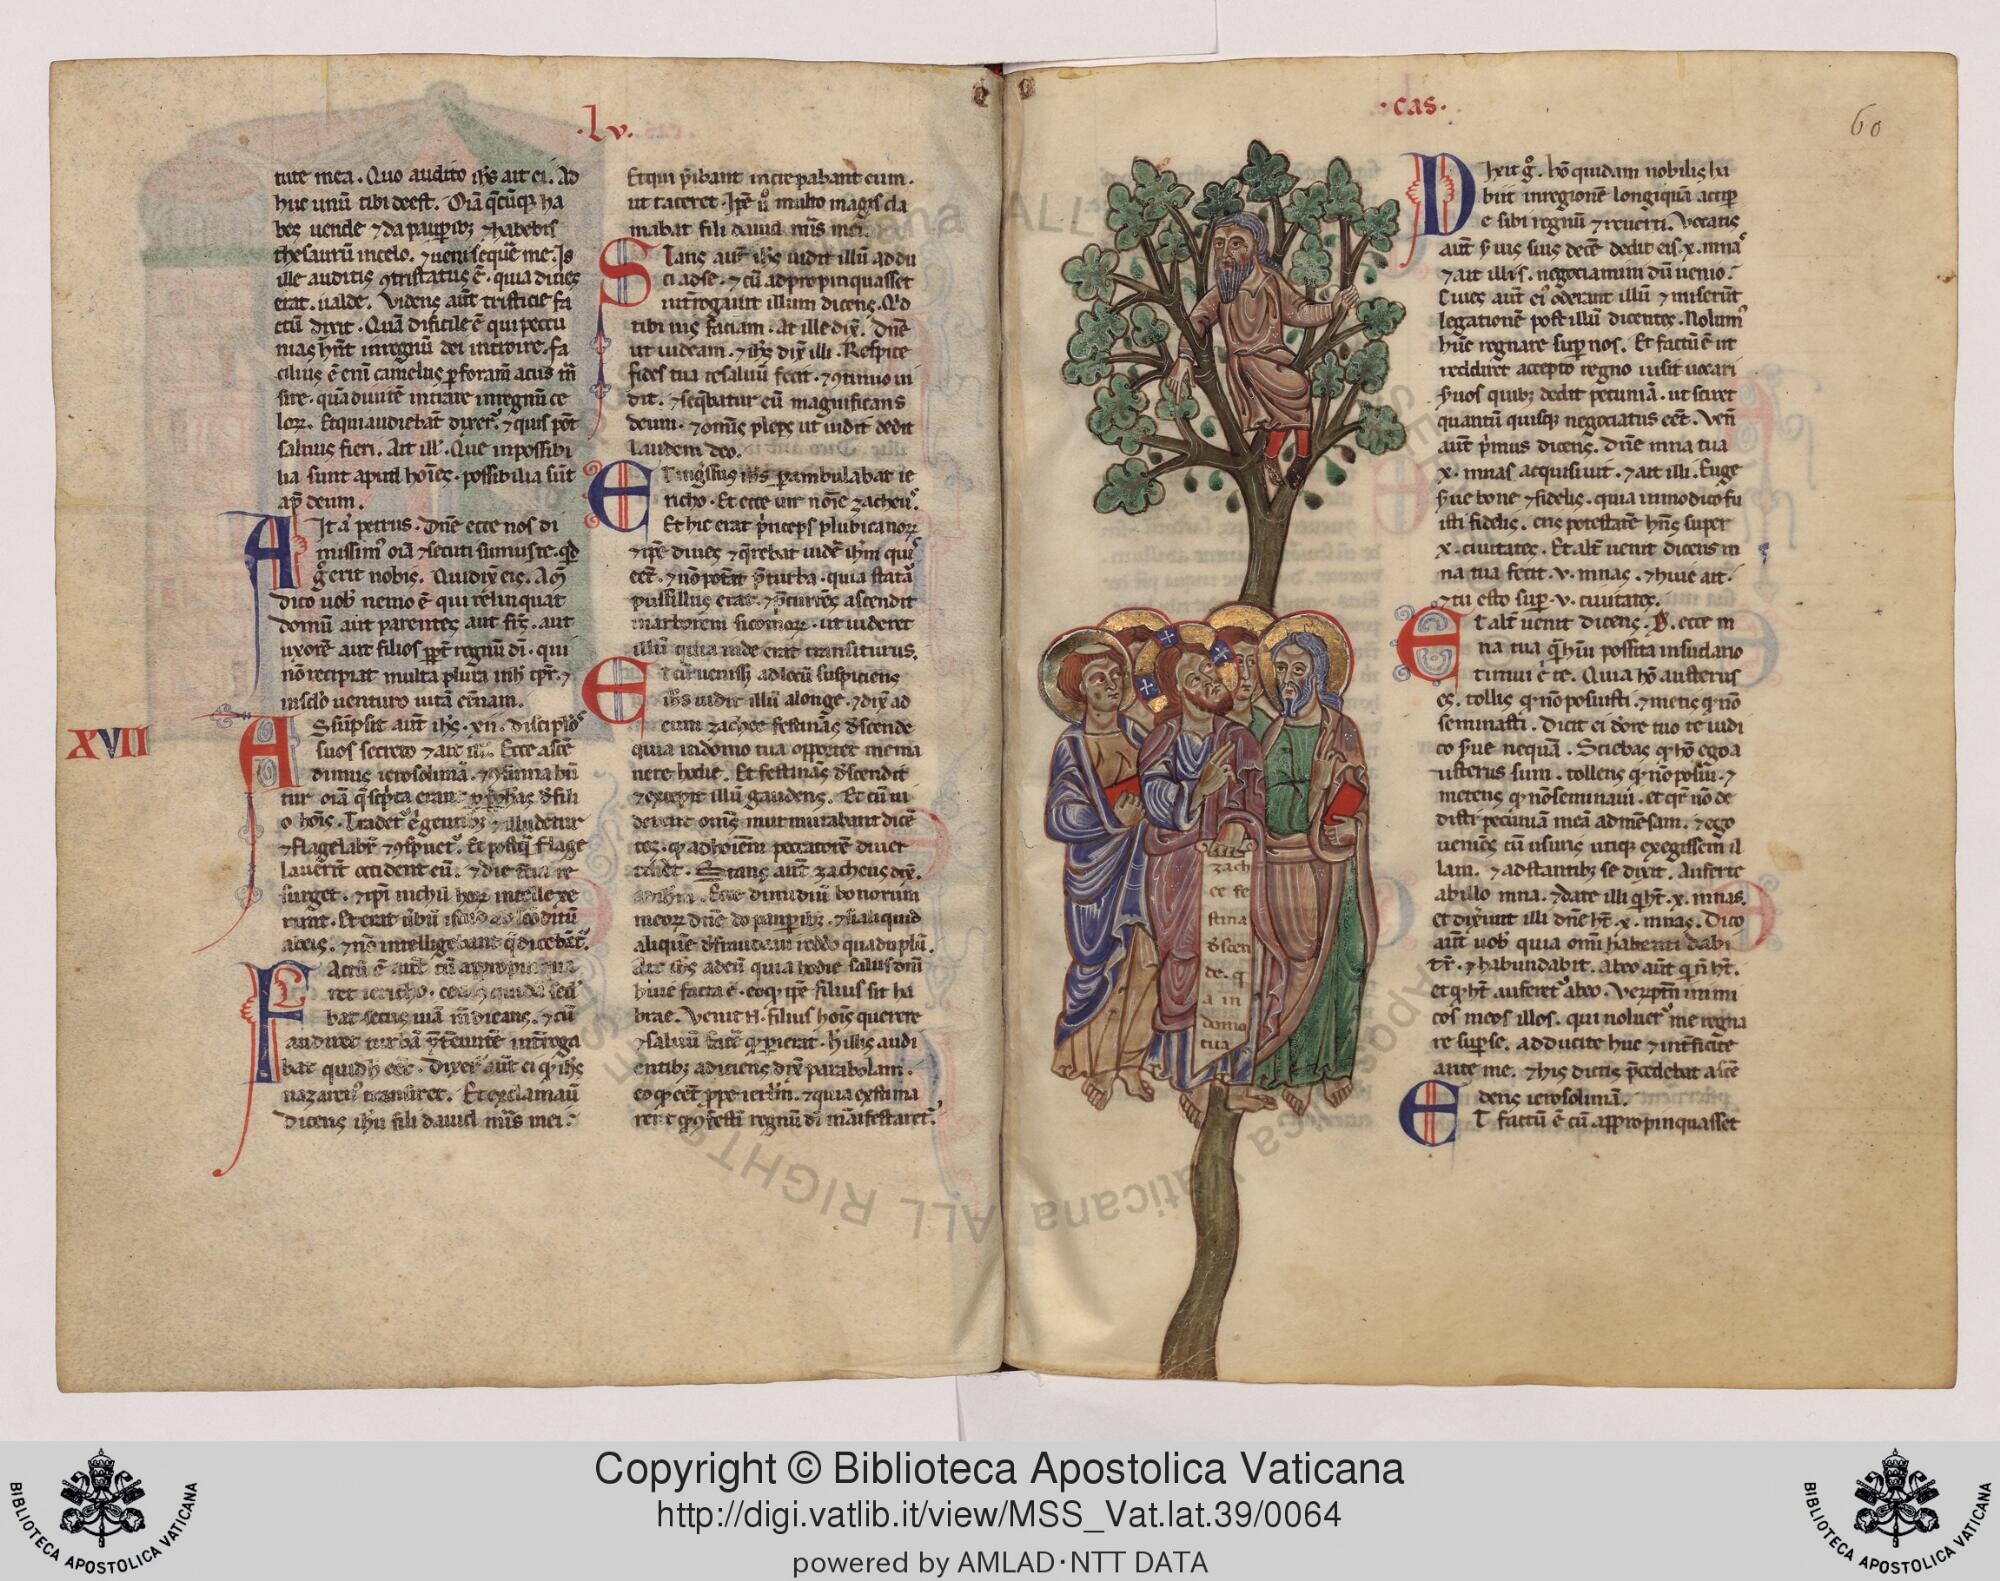 ·Lv·
tute mea. Quo audito ihs̄ ait ei. Ad
huc unū tibi deest. Oīa q̄cūq; ha
bes uende ⁊ da paupib; ⁊ habebis
thesaurū in celo. ⁊ ueni sequē me. Is
ille auditis ɔtristatus ē. quia diues
erat ualde. Videns aūt tristicie fa
ctū dixit. Quā dificile ē qui peccu
nias hn̄t in regnū dei introire. fa
cilius ē eni camelus p foram̄ acus trā
sire. qua diuitē intrare in regnū ce
loꝝ. Et qui audiebāt dixer̄. ⁊ quis pōt
saluus fieri. Ait ill̄. Que inpossibi
lia sunt apud hoīes. possibilia sūt
ap̄ deum.
Ait a petrus. Dn̄e ecce nos di
missim oīa ⁊ secuti sumus te. qd̄
g erit nobis. Qui dix̄ eis. Am̄
dico uob nemo ē qui relinquat
domū aut parentes aut frs̄. aut
uxorē aut filios ppt̄ regnū dī. qui
nō recipiat multa plura in h tpr̄. ⁊
in sclo uenturo uitā et̄nam.
XVII
Assūpsit aūt ihs̄. xii. discipłos
suos secreto ⁊ ait ill. Ecce ascē
dimus ierosolimā. ⁊ ɔsūmabū
tur oīa q̄ sc̄pta erant
o hoīs. Tradet e gentib; ⁊ illudetur
⁊ flagelabr̄ ⁊ ɔspuet. Et postq̄ flage
lauerīt occident eū. ⁊ die t̄cia re
surget. ⁊ ipi nichil hoꝝ intellexe
runt. Et erat ūbū
ab eis. ⁊ nō intelligebant q̄ dicebāt.
Factū ē aūt cū appropinqua
ret iericho. cecus quidā sed
bat secus uiā m̄dicans. ⁊ cū
audiret turbā p̄t̄euntē int̄roga
bat quid h eēt. Dixer̄ aūt ei q ihs̄
nazaren transiret. Et exclamaū
dicens ihū fili dauid mis̄ mei.
Et qui p̄ibant increpabant eum.
ut taceret. Ipe ū multo magis cla
mabat fili dauid mis̄ mei.
Stans aūt ihs̄ iudit illū addu
ci ad se. ⁊ cū adpropinquasset
int̄rogauit illum dicens. Qd
tibi uis faciam. At ille dix̄. Dn̄e
ut uideam. ⁊ ihs̄ dix̄ illi. Respice
fides tua te saluū fecit. ⁊ ɔtinuo ui
dit. ⁊ seq̄batur eū magnificans
deum. ⁊ omīs plebs ut uidit dedit
laudem deo.
Et ingressus ihs̄ perambulabat ie
richo. Et ecce uir noīe zacheus.
Et hic erat p̄nceps publicanoꝝ
⁊ ipe diues ⁊ q̄rebat uidē ihm̄ quis
eēt. ⁊ nō potāt p̄ turba. quia statū
pusillus erat. ⁊ p̄currēs ascendit
in arborem sicomoꝝ. ut uideret
illū quia inde erat transiturus.
Et cū uenisset ad locū suspiciens
ihs̄ uidit illū a longe. ⁊ dix̄ ad
eum zachee festināns d̄scende
quia in domo tua opportet me ma
nere hodie. Et festināns d̄scendit
⁊ excepit illū gaudens. Et cū ui
derent omīs murmurabant dicē
tes. q ad hoīem peccatorē diuer
tisset. Stans aūt zacheus dix̄.
ad ihm̄. Ecce dimidiū bonorum
meoꝝ dn̄e do paupib;. ⁊ si aliquid
aliquē d̄fraudaui reddo quaduplū.
Ait ihs̄ ad eū quia hodie salus dm̄
huic facta ē. eo q ipe filius sit ha
brae. Venit n. filius hoīs querere
⁊ saluū facē q pierat. H̄ illis audi
entib; adiciens dix̄ parabolam.
eo q eēt ppe ierłm. ⁊ quia existima
rent q ɔfesti regnū dī māifestaret.
·cas·
60
zach
ee fe
stina
d̄scen
de. q
a in
domo
tua
Dixit g. hō quidam nobilis ha
biit in regionē longiquā accip
e sibi regnū ⁊ reuerti. Vocatis
aūt s̄uis suis decē dedit eis. x. mnas
⁊ ait illis. negociamini dū uenio.
Ciues aūt ei oderant illū ⁊ miserūt
legationē post illū dicentes. Nolum
hūc regnare sup nos. Et factū ē ut
rediret accepto regno iusit uocari
s̄uos quib; dedit pecuniā. ut sciret
quantū quisq; negociatus eēt. Ven̄
aūt p̄mus dicens. Dn̄e mna tua
x. mnas acquisiuit. ⁊ ait illi. Euge
s̄ue bone ⁊ fidelis. quia in modico fu
isti fidelis. eris potestatē hn̄s super
x. ciuitates. Et alt̄ uenit dicens m
na tua fecit. v. mnas. ⁊ huic ait.
⁊ tu esto sup. v. ciuitates.
Et alt̄ uenit dicens. D. ecce m
na tua q̄ hūi possita in sudario
timui e te. Quia hō austerus
es. tollis q nō posuisti. ⁊ metis q nō
seminasti. Dicit ei d ore tuo te iudi
co s̄ue nequā. Sciebas q hō ego a
usterus sum. tollens q nō posui. ⁊
metens q nō seminaui. et q̄r nō de
disti pecuniā meā ad mēsam. ⁊ ego
ueniēs cū usuris utiq; exegissem il
lam. ⁊ adstantib; se dixit. Auferte
ab illo mna. ⁊ date illi q ht̄. x. mnas.
et dix̄unt illi dn̄e ht̄. x. mnas. Dico
aūt uob quia omī habenti dabi
tr̄. ⁊ habundabit. Ab eo aūt q n̄ ht̄.
et q ht̄ auferet ab eo. Veꝝptn̄ inimi
cos meos illos. qui noluer̄ me regna
re sup se. adducite huc ⁊ int̄ficite
ante me. ⁊ his dictis p̄cedebat ascē
dens ierosolimā.
Et factū ē cū appropinquasset
Copyright © Biblioteca Apostolica Vaticana
http://digi.vatlib.it/view/MSS_Vat.lat.39/0064
powered by AMLAD·NTT DATA
BIBLIOTECA APOSTOLICA VATICANA
BIBLIOTECA APOSTOLICA VATICANA